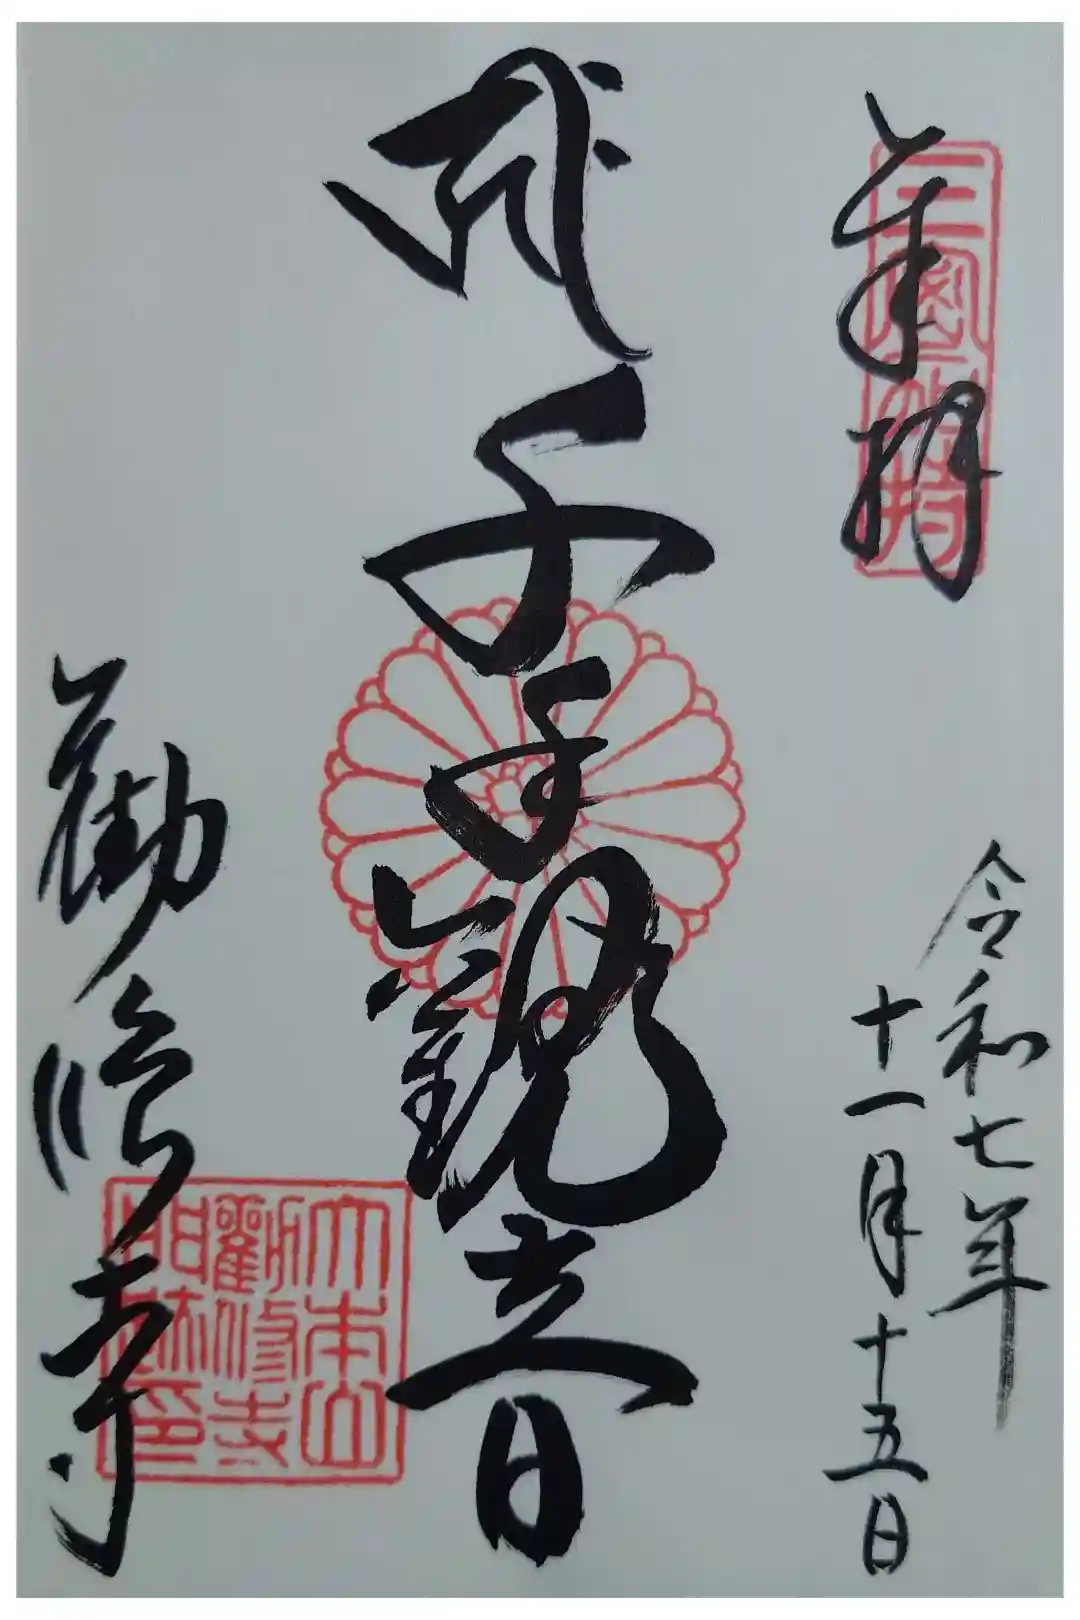 奉拝
令和七年
十一月十五日
千手観音
勧修寺
大本山
勧修寺